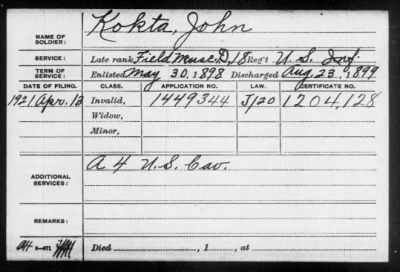 Kokta, John
NAME OF SOLDIER:
SERVICE: Late rank Field Musc. D, 18 Reg't U. S. Inf.
TERM OF SERVICE: Enlisted May 30, 1898 Discharged Aug. 23, 1899
DATE OF FILING. CLASS. APPLICATION NO. LAW. CERTIFICATE NO.
1921 Apr. 13 Invalid, 1449344 J/20 1204,128
Widow,
Minor,
ADDITIONAL SERVICES: A 4 U.S. Cav.
REMARKS:
Died , 1 , at